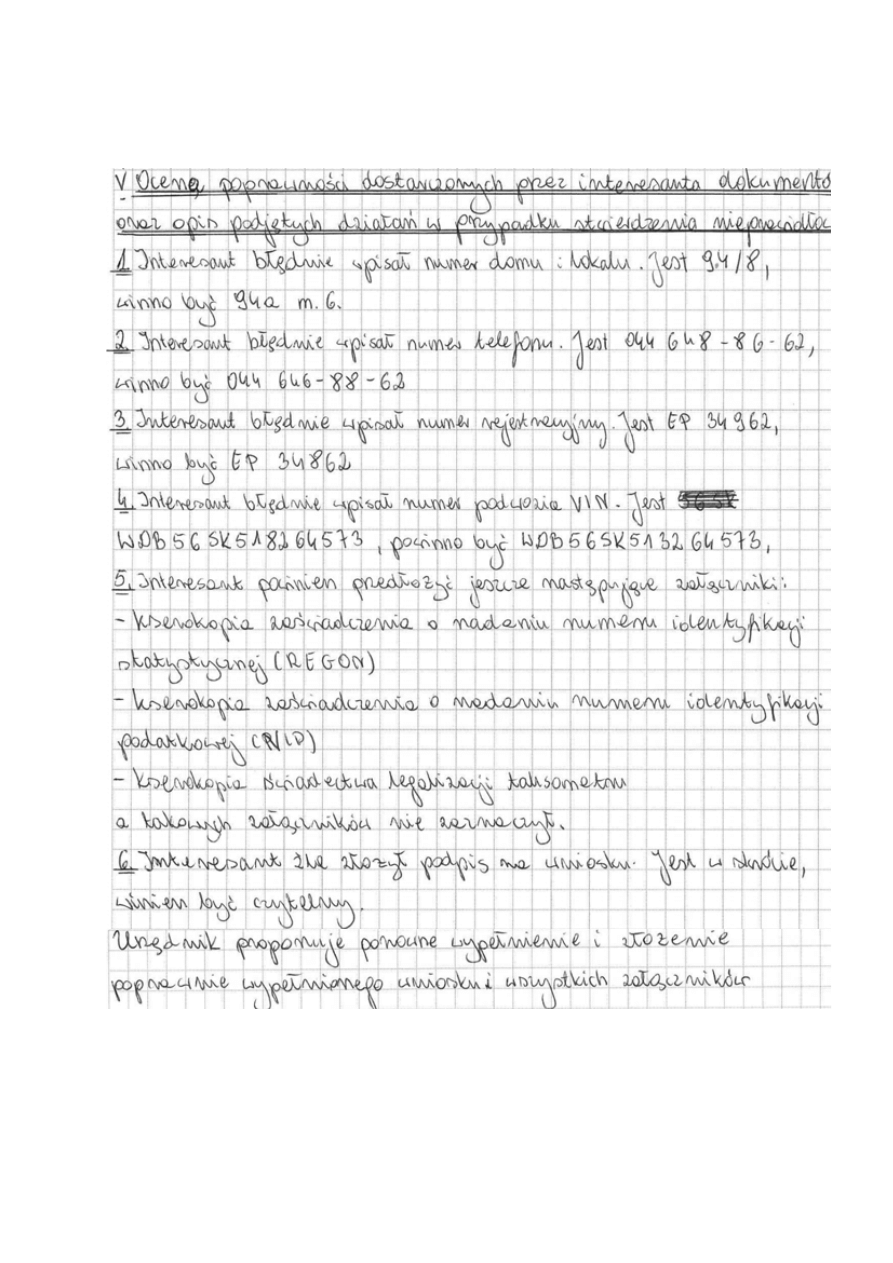 V Ocena poprawności dostarczonych przez interesanta dokumentó
oraz opis podjętych działań w przypadku stwierdzenia nieprawidłoc
1. Interesant błędnie wpisał numer domu i lokalu. Jest 94/8,
winno być 94a m. 6.
2. Interesant błędnie wpisał numer telefonu. Jest 044 648-86-62,
winno być 044 646-88-62
3. Interesant błędnie wpisał numer rejestracyjny. Jest EP 34962,
winno być EP 34862
4. Interesant błędnie wpisał numer podwozia VIN. Jest
WDB565K518264573, powinno być WDB565K513264573,
5. Interesant powinien przedłożyć jeszcze następujące załączniki:
- kserokopia zaświadczenia o nadaniu numeru identyfikacji
statystycznej (REGON)
- kserokopia zaświadczenia o nadaniu numeru identyfikacji
podatkowej (NIP)
- kserokopia świadectwa legalizacji taksometru
a takowych załączników nie zaznaczył.
6. Interesant źle złożył podpis na wniosku. Jest w skrócie,
winien być czytelny.
Urzędnik proponuje ponowne wypełnienie i złożenie
poprawnie wypełnionego wniosku i wszystkich załączników